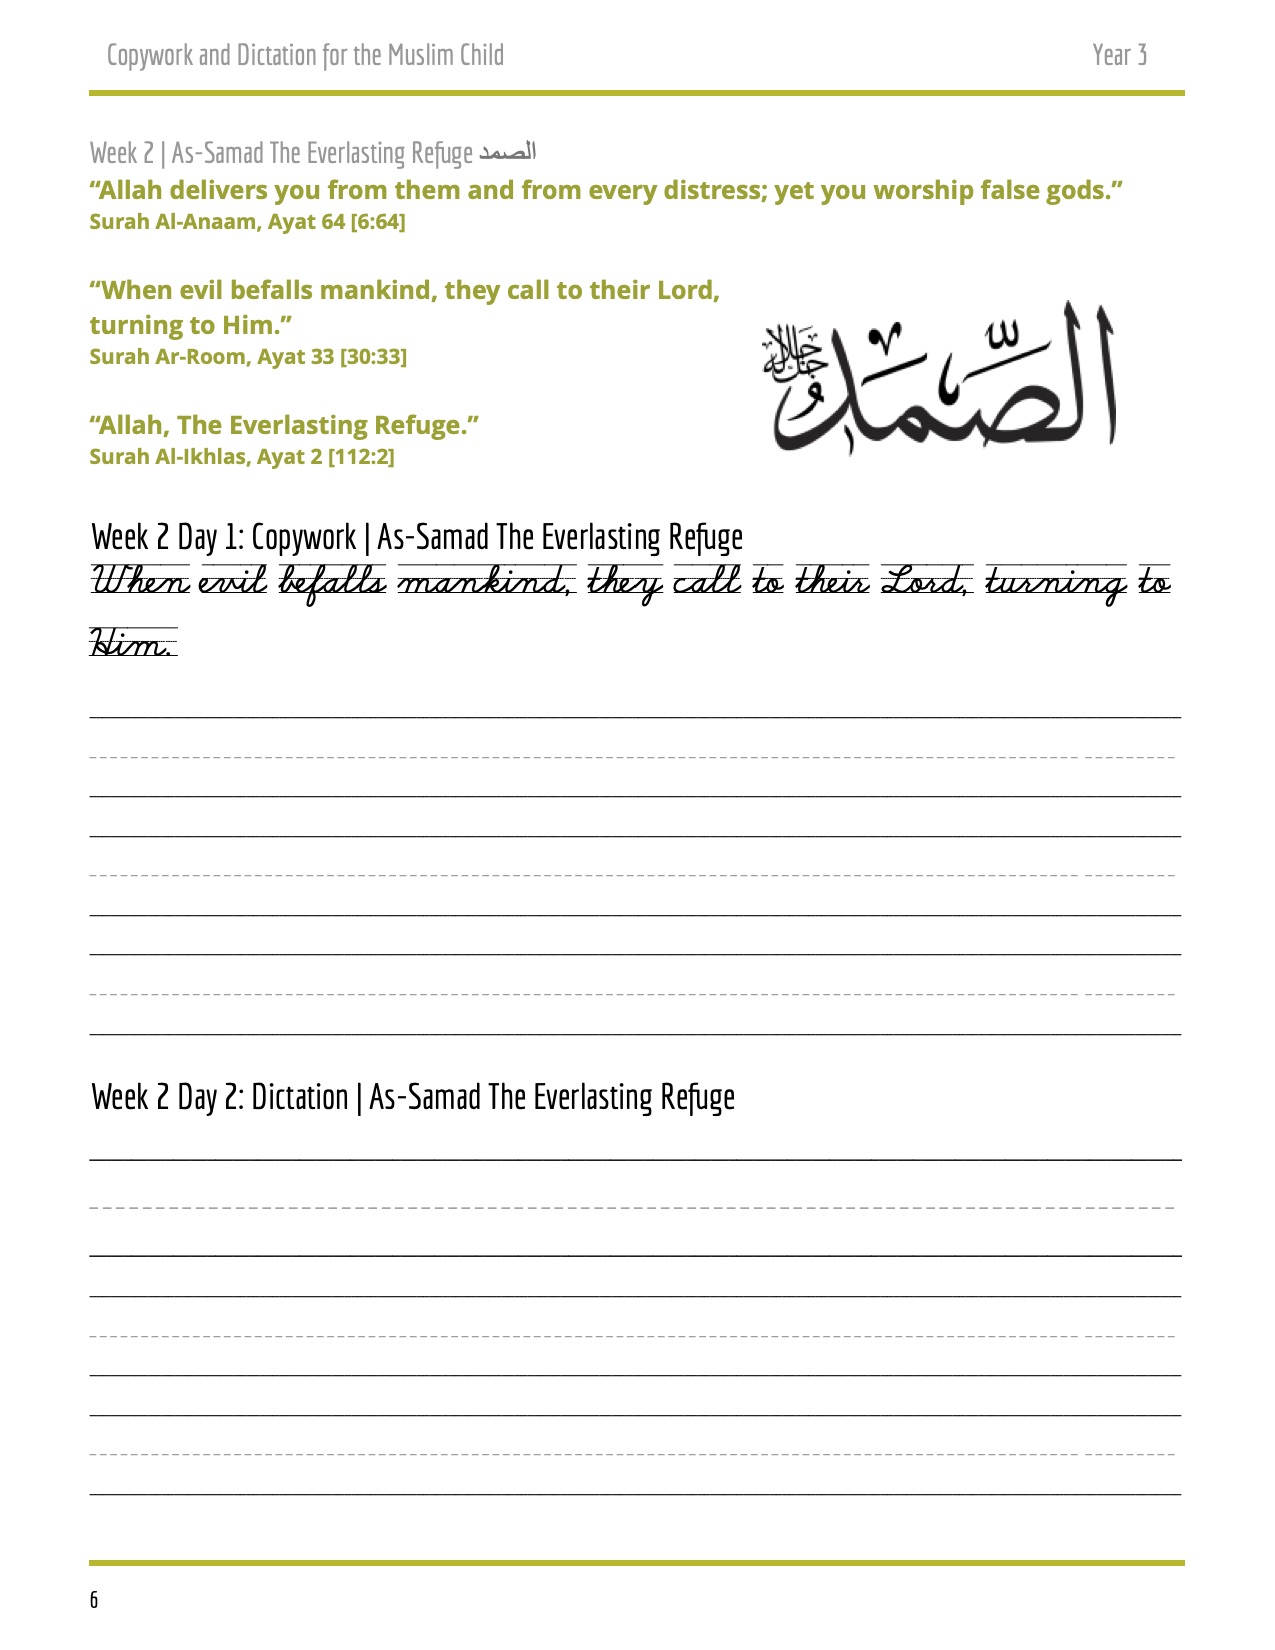 Copywork and Dictation for the Muslim Child Year 3
Week 2 | As-Samad The Everlasting Refuge الصمد
“Allah delivers you from them and from every distress; yet you worship false gods.”
Surah Al-Anaam, Ayat 64 [6:64]
“When evil befalls mankind, they call to their Lord,
turning to Him.”
Surah Ar-Room, Ayat 33 [30:33]
“Allah, The Everlasting Refuge.”
Surah Al-Ikhlas, Ayat 2 [112:2]
الصَّمَدُ جل جلاله
Week 2 Day 1: Copywork | As-Samad The Everlasting Refuge
When evil befalls mankind, they call to their Lord, turning to
Him.
Week 2 Day 2: Dictation | As-Samad The Everlasting Refuge
6